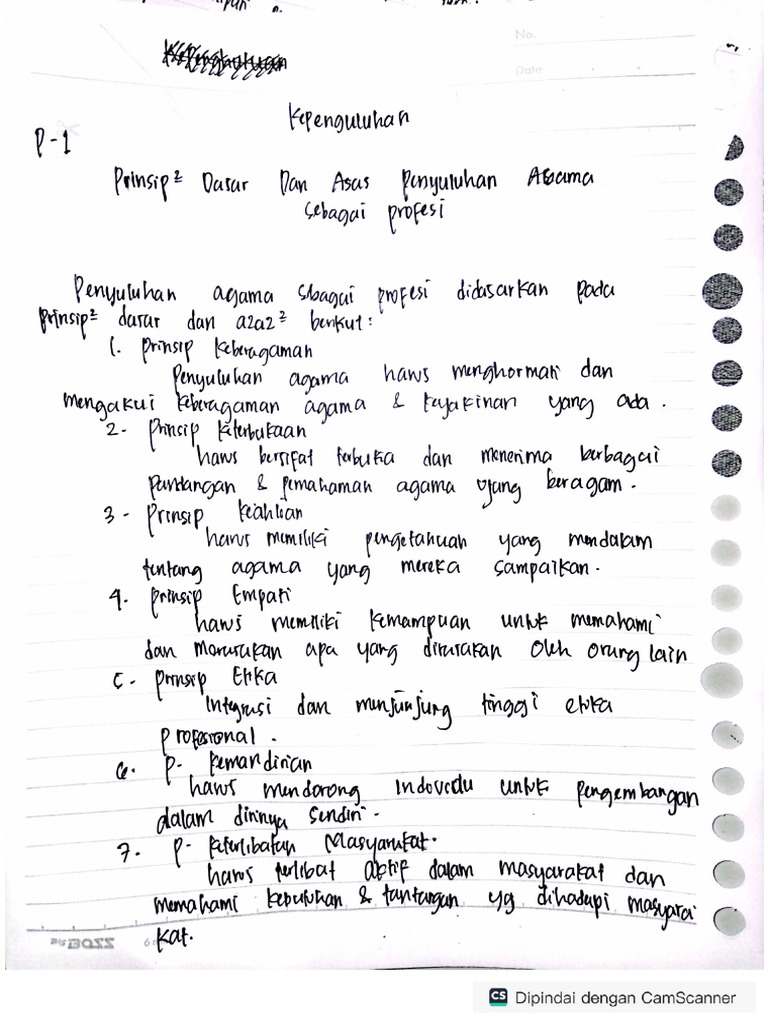 No.
Date
Kepenguluhan
P-1
Prinsip² Dasar Dan Asas Penyuluhan Agama
sebagai profesi
Penyuluhan agama sbagai profesi didasarkan pada
prinsip² dasar dan a2a2² berikut:
1. prinsip keberagaman
Penyuluhan agama harus menghormati dan
mengakui keberagaman agama & keyakinan yang ada.
2- Prinsip keterbukaan
harus bersifat terbuka dan menerima berbagai
pandangan & pemahaman agama yang beragam.
3 - Prinsip keahlian
harus memiliki pengetahuan yang mendalam
tentang agama yang mereka sampaikan.
4. prinsip Empati
harus memiliki kemampuan untuk memahami
dan merasakan apa yang dirasakan oleh orang lain
5 - prinsip Etika
Integrasi dan menjunjung tinggi etika
profesional.
6. p- kemandirian
harus mendorong Individu untuk pengembangan
dalam dirinya sendiri.
7. p- keterlibatan Masyarakat.
harus terlibat aktif dalam masyarakat dan
memahami kebutuhan & tantangan yg dihadapi masyara
kat.
BIG BOSS
CS Dipindai dengan CamScanner